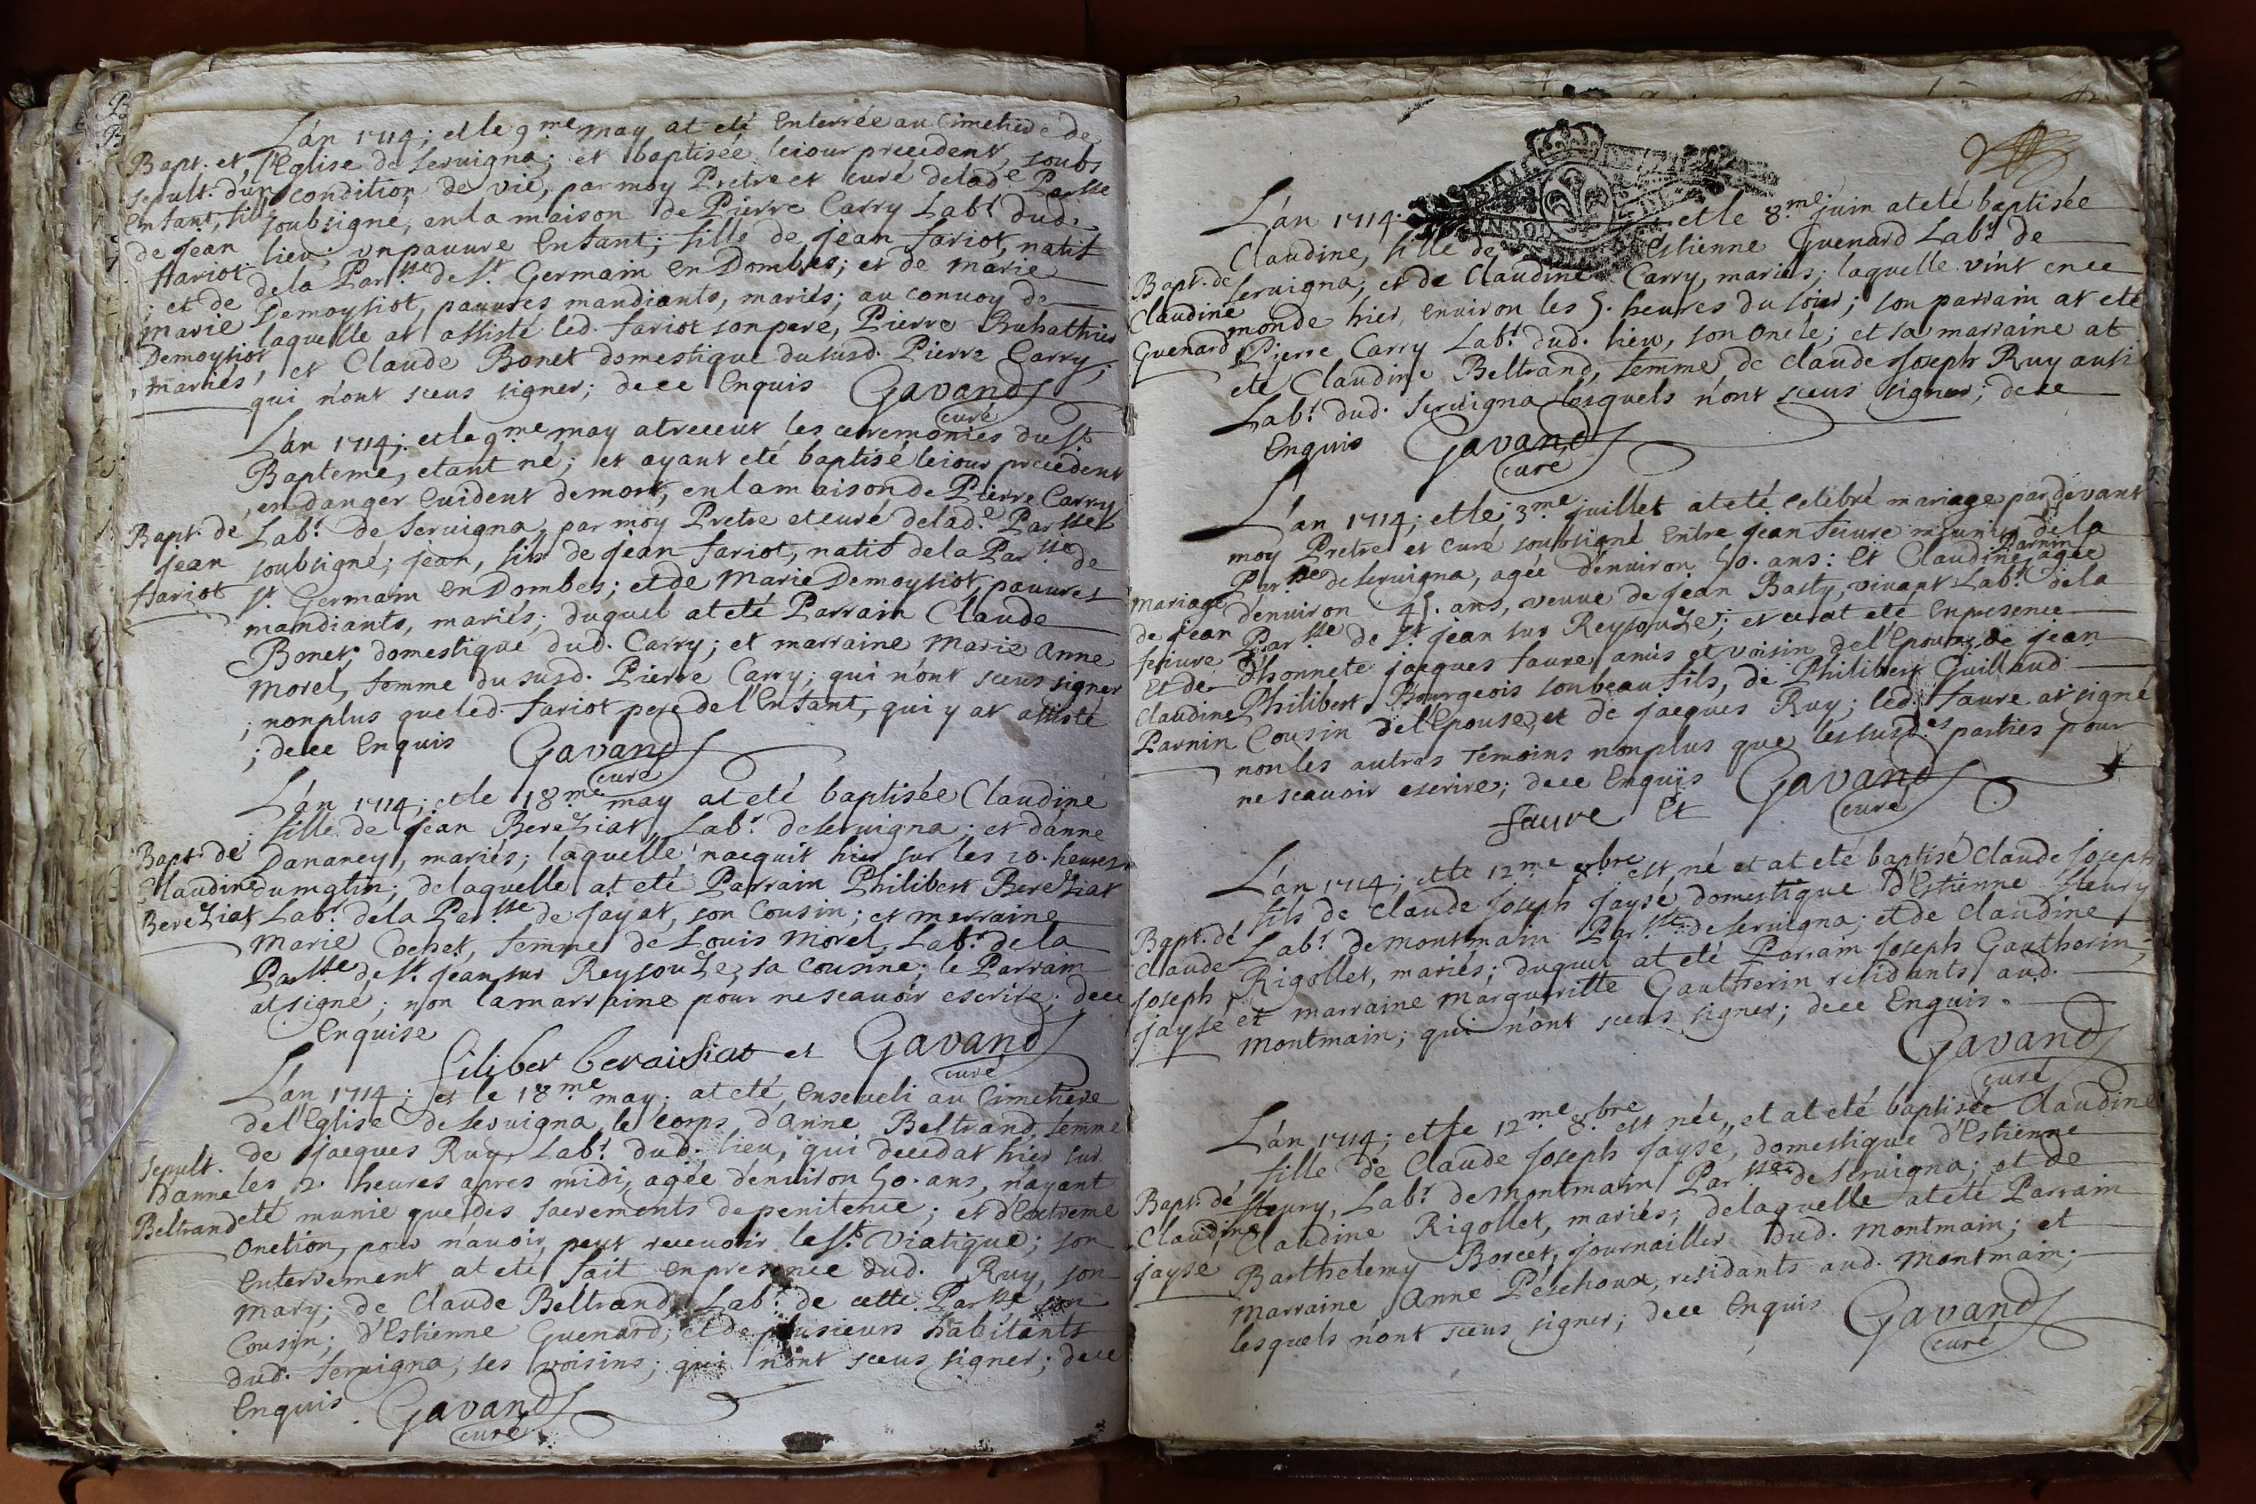 L'an 1714; et le 9.me may at eté Enterrée au Cimetiere de
l'Eglise de Servigna; et baptisée le iour precedent, soubs
condition de vie, par moy Pretre et curé de lad.e Par.sse
soubsigné, en la maison de Pierre Carry Lab.r dud.
lieu; un pauvre Enfant; fille de jean fariot, natif
de la Par.sse de S.t Germain en Dombes; et de marie
Demoysiot, pauvres mandiants, mariés; au convoy de
laquelle at assisté led. fariot son pere, Pierre
et Claude Bonet domestique du susd. Pierre Carry;
qui n'ont sceus signer; de ce Enquis Gavand
curé
Bapt. et
sepult. d'un
Enfant, fille
de jean
fariot
; et de
marie
Demoysiot
, mariés
L'an 1714; et le 9.me may at receut les ceremonies du S.t
Bapteme, etant né; et ayant eté baptisé le iour precedent
, en danger Evident de mort, en la maison de Pierre Carry
Lab.r de Servigna, par moy Pretre et curé de lad.e Par.sse
soubsigné; jean, fils de jean fariot, natif de la Par.sse de
S.t Germain en Dombes; et de Marie Demoysiot, pauvres
mandiants, mariés; duquel at eté Parrain Claude
Bonet, domestique dud. Carry; et marraine Marie anne
Morel, femme du susd. Pierre Carry; qui n'ont sceus signer
; non plus que led. fariot pere de l'Enfant, qui y at assisté
; de ce Enquis Gavand
curé
Bapt. de
jean
fariot
L'an 1714; et le 18.me may at eté baptisée Claudine
fille de jean Bereziat, Lab.r de Servigna; et d'anne
Dananey, mariés; laquelle nacquit hier sur les 10. heures
du matin; de laquelle at eté Parrain Philibert Bereziat
Lab.r de la Par.sse de jayat, son Cousin; et marraine
Marie Cochet, femme de Louis Morel, Lab.r de la
Par.sse de S.t jean sur Reysouze, sa cousine; le Parrain
at signé; non la marraine pour ne scavoir escrire; de ce
Enquise
filiber beraisiat et Gavand
curé
Bapt. de
Claudine
Bereziat
L'an 1714; et le 18.me may; at eté Enseveli au Cimetiere
de l'Eglise de Servigna, le corps d'anne Beltrand, femme
de jacques Ruy Lab.r dud. lieu, qui decedat hier sur
les 2. heures apres midi, agée d'environ 50. ans, n'ayant
eté munie que des sacrements de penitence; et d'Extreme
Onction, pour n'avoir peut recevoir le S.t Viatique; son
Enterrement at eté fait en presence dud. Ruy, son
mary; de Claude Beltrand Lab.r de cette Par.sse son
Cousin; d'Estienne Guenard; et de plusieurs habitants
dud. Servigna, ses voisins; qui n'ont sceus signer; de ce
Enquis. Gavand
curé
Sepult.
d'anne
Beltrand
L'an 1714; et le 8.me juin at eté baptisée
Claudine, fille de Estienne Guenard Lab.r de
Servigna; et de Claudine Carry, mariés; laquelle vint en ce
monde hier, environ les 5. heures du soir; son parrain at eté
Pierre Carry Lab.r dud. lieu, son oncle; et sa marraine at
eté Claudine Beltrand, femme de claude Joseph Ruy ausi
Lab.r dud. Servigna lesquels n'ont sceus signer; de ce
Enquis Gavand
curé
Bapt. de
Claudine
Guenard
L'an 1714; et le 3.me juillet at eté celebré mariage par devant
moy Pretre et curé soubsigné Entre jean feivre meunier de la
Par.sse de Servigna, agée d'environ 50. ans: Et Claudine Parnin agée
d'environ 45. ans, veuve de jean Basty, vivant Lab.r de la
Par.sse de S.t jean sur Reysouze; et ce at eté En presence
d'honnete jacques faure amis et voisin de l'Epoux, de jean
Philibert Bourgeois son beau fils, de Philibert Guillaud
Cousin de l'Epouse, et de jacques Ruy; led. faure at signé
non les autres temoins non plus que les susd.es parties pour
ne scavoir escrire; de ce Enquis Gavand
curé
faure Et
mariage
de jean
feivre
Et de
Claudine
Parnin
L'an 1714; et le 12.me 8.bre est né et at eté baptisé Claude Joseph
fils de Claude Joseph jaysé domestique d'Estienne fleury
Lab.r de montmain Par.sse de Servigna; et de Claudine
Rigollet, mariés; duquel at eté Parrain Joseph Gautherin;
et marraine margueritte Gautherin residants aud.
montmain; qui n'ont sceus signer; de ce Enquis.
Gavand
curé
Bapt. de
Claude
Joseph
jaysé
L'an 1714; et le 12.me 8.bre est née, et at eté baptisée Claudine
fille de Claude Joseph jaysé, domestique d'Estienne
fleury, Lab.r de montmain Par.sse de Servigna; et de
Claudine Rigollet, mariés; de laquelle at eté Parrain
Barthelemy Borcet, journaillier dud. montmain; et
marraine Anne Peschoux, residants aud. montmain;
lesquels n'ont sceus signer; de ce Enquis Gavand
curé
Bapt. de
Claudine
jaysé